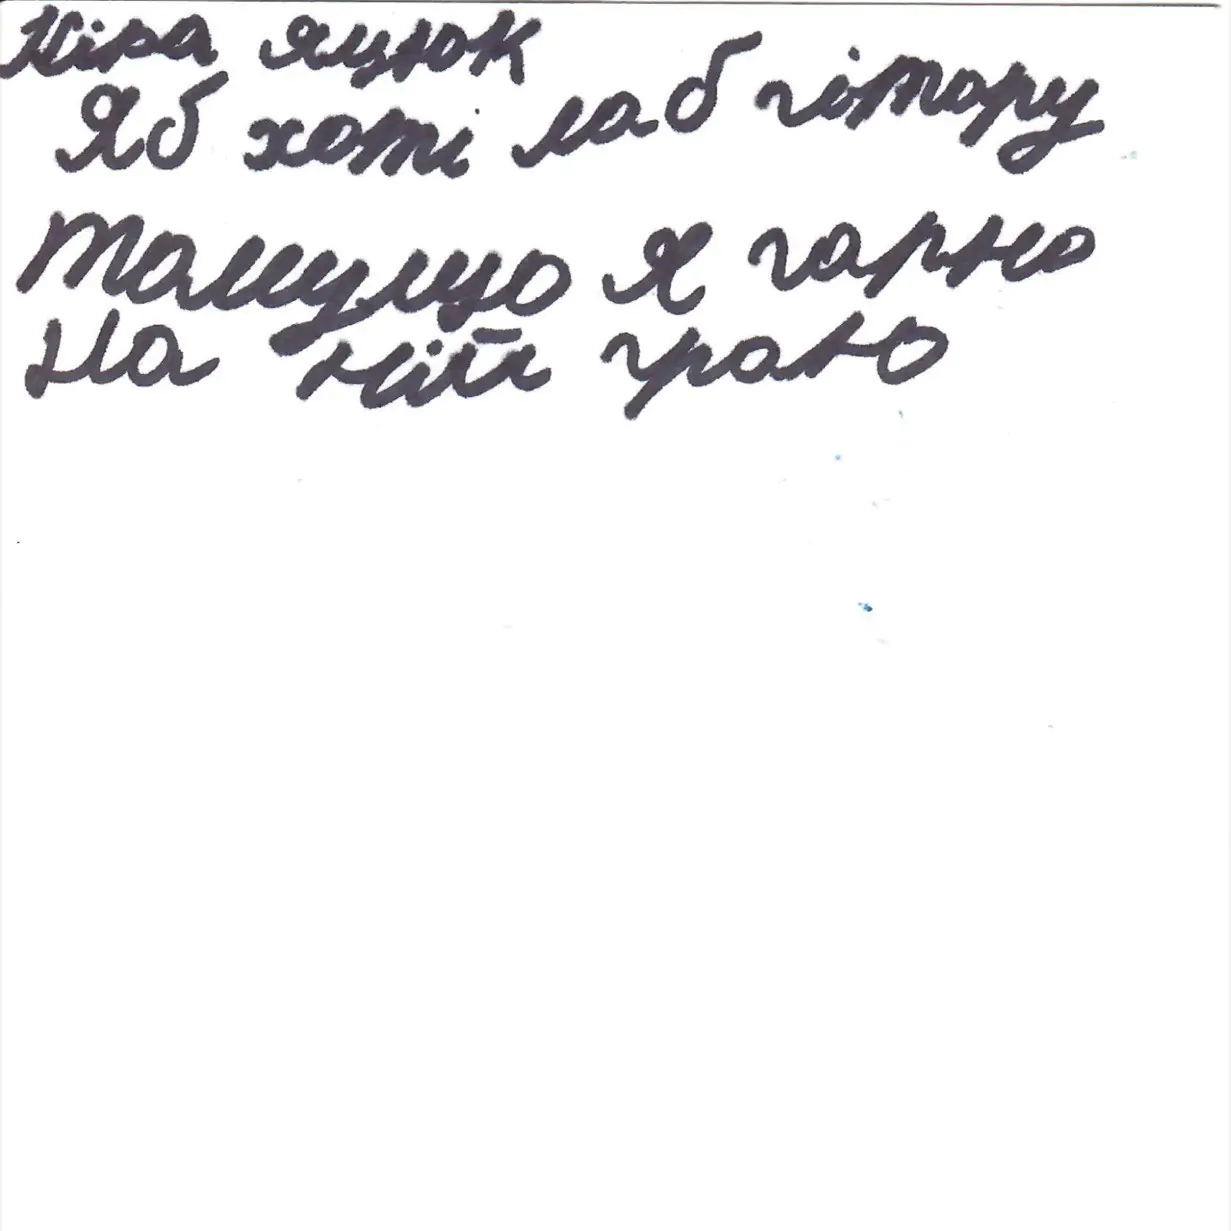 Кіра яцюк
Яб хоті лаб гітару
тамущо я гарно
на ній граю